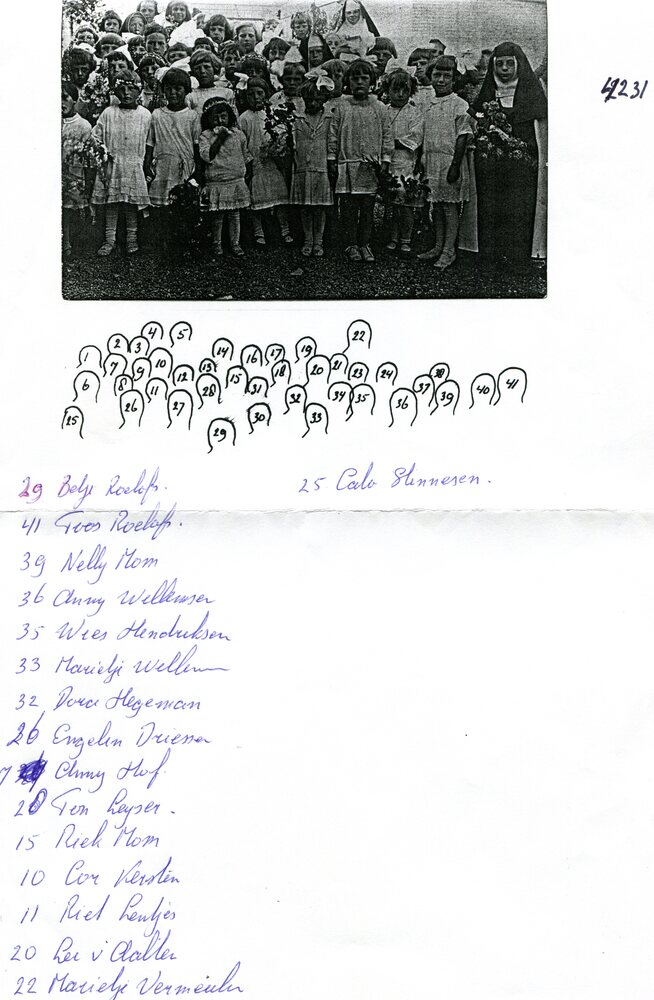 4231
1 2 3 4 5 6 7 8 9 10 11 12 13 14 15 16 17 18 19 20 21 22 23 24 25 26 27 28 29 30 31 32 33 34 35 36 37 38 39 40 41
29 Betje Roelofs.
25 Cato
41 Toos Roelofs.
39 Nelly Mom
36 Anny Willemsen
35 Wies Hendriksen
33 Marietje
32 Dora Hegeman
26 Engelin Driessen
Anny Hof.
Ton Leyser.
15 Riek Mom
10 Cor Kersten
11 Riet Lentjes
20 v Aalten
22 Marietje Vermeulen